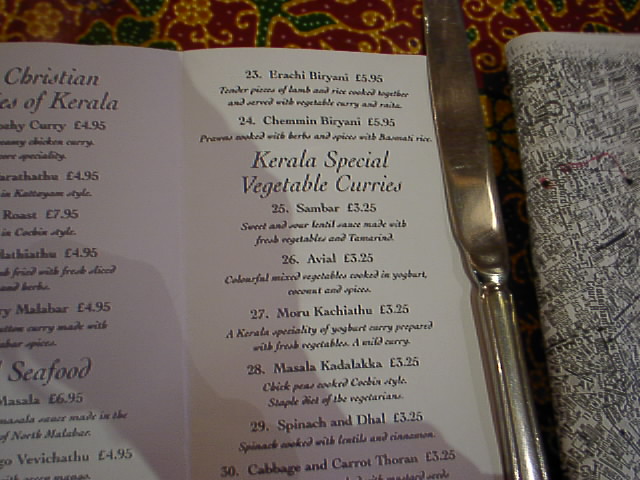 Christian
es of Kerala
Curry £4.95
chicken curry.
speciality.
£4.95
in Kottayam style.
Roast £7.95
in Cochin style.
£4.95
fried with fresh sliced
and herbs.
Malabar £4.95
curry made with
spices.
Seafood
Masala £6.95
masala sauce made in the
of North Malabar.
Vevichathu £4.95
with green mango.
23. Erachi Biryani £5.95
Tender pieces of lamb and rice cooked together
and served with vegetable curry and raita.
24. Chemmin Biryani £5.95
Prawns cooked with herbs and spices with Basmati rice.
Kerala Special
Vegetable Curries
25. Sambar £3.25
Sweet and sour lentil sauce made with
fresh vegetables and Tamarind.
26. Avial £3.25
Colourful mixed vegetables cooked in yoghurt,
coconut and spices.
27. Moru Kachiathu £3.25
A Kerala speciality of yoghurt curry prepared
with fresh vegetables. A mild curry.
28. Masala Kadalakka £3.25
Chick peas cooked Cochin style.
Staple diet of the vegetarians.
29. Spinach and Dhal £3.25
Spinach cooked with lentils and cinnamon.
30. Cabbage and Carrot Thoran £3.25
with mustard seeds